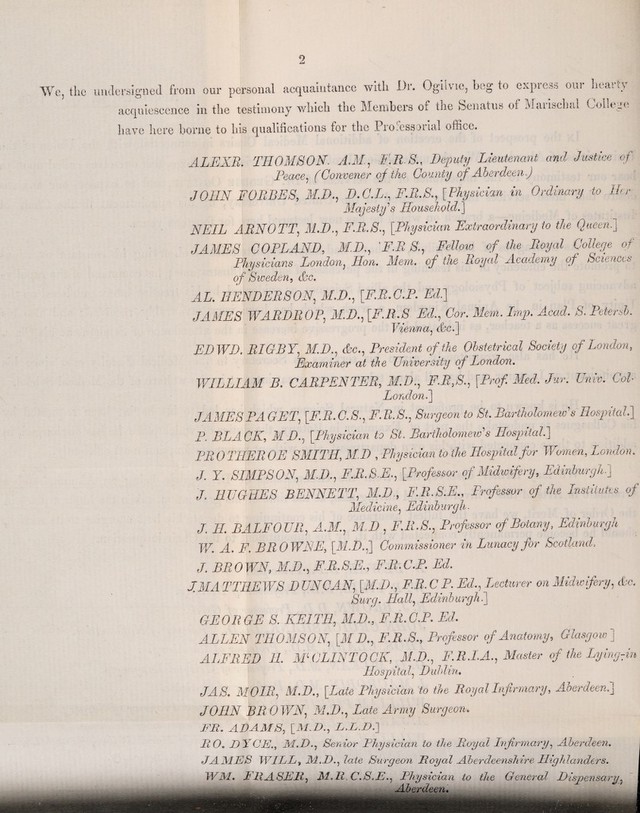 2
We, the undersigned from our personal acquaintance with Dr. Ogilvie, beg to express our hearty
acquiescence in the testimony which the Members of the Senatus of Marischal College
have here borne to his qualifications for the Professorial office.
ALEXR. THOMSON. A.M., F.R.S., Deputy Lieutenant and Justice of
Peace, (Convener of the County of Aberdeen.)
JOHN FORBES, M.D., D.C.L., F.R.S., [Physician in Ordinary to Her
Majesty's Household.]
NEIL ARNOTT, M.D., F.R.S., [Physician Extraordinary to the Queen.]
JAMES COPLAND, M.D., F.R S., Fellow of the Royal College of
Physicians London, Hon. Mem. of the Royal Academy of Sciences
of Sweden, &c.
AL. HENDERSON, M.D., [F.R.C.P. Ed.]
JAMES WARDROP, M.D., [F.R.S Ed., Cor. Mem. Imp. Acad. S. Petersb.
Vienna, &c.]
EDWD. RIGBY, M.D., &c., President of the Obstetrical Society of London,
Examiner at the University of London.
WILLIAM B. CARPENTER, M.D., F.R,S., [Prof. Med. Jur. Univ. Col-
London.]
JAMES PAGET, [F.R.C.S., F.R.S., Surgeon to St. Bartholomew's Hospital.]
P. BLACK, M D., [Physician to St. Bartholomew's Hospital.]
PROTHEROE SMITH, M.D , Physician to the Hospital for Women, London.
J. Y. SIMPSON, M.D., F.R.S.E., [Professor of Midwifery, Edinburgh.]
J. HUGHES BENNETT, M.D., F.R.S.E., Professor of the Institutes of
Medicine, Edinburgh.
J. H. BALFOUR, A.M., M.D , F.R.S., Professor of Botany, Edinburgh
W. A. F. BROWNE, [M.D.,] Commissioner in Lunacy for Scotland.
J. BROWN, M.D., F.R.S.E., F.R.C.P. Ed.
J.MATTHEWS DUNCAN, [M.D., F.R.C P. Ed., Lecturer on Midwifery, &c.
Surg. Hall, Edinburgh.]
GEORGE S. KEITH, M.D., F.R.C.P. Ed.
ALLEN THOMSON, [M D., F.R.S., Professor of Anatomy, Glasgow ]
ALFRED H. M'CLINTOCK, M.D., F.R.I.A., Master of the Lying-in
Hospital, Dublin.
JAS. MOIR, M.D., [Late Physician to the Royal Infirmary, Aberdeen.]
JOHN BROWN, M.D., Late Army Surgeon.
FR. ADAMS, [M.D., L.L.D.]
RO. DYCE., M.D., Senior Physician to the Royal Infirmary, Aberdeen.
JAMES WILL, M.D., late Surgeon Royal Aberdeenshire Highlanders.
WM. FRASER, M.R.C.S.E., Physician to the General Dispensary,
Aberdeen.